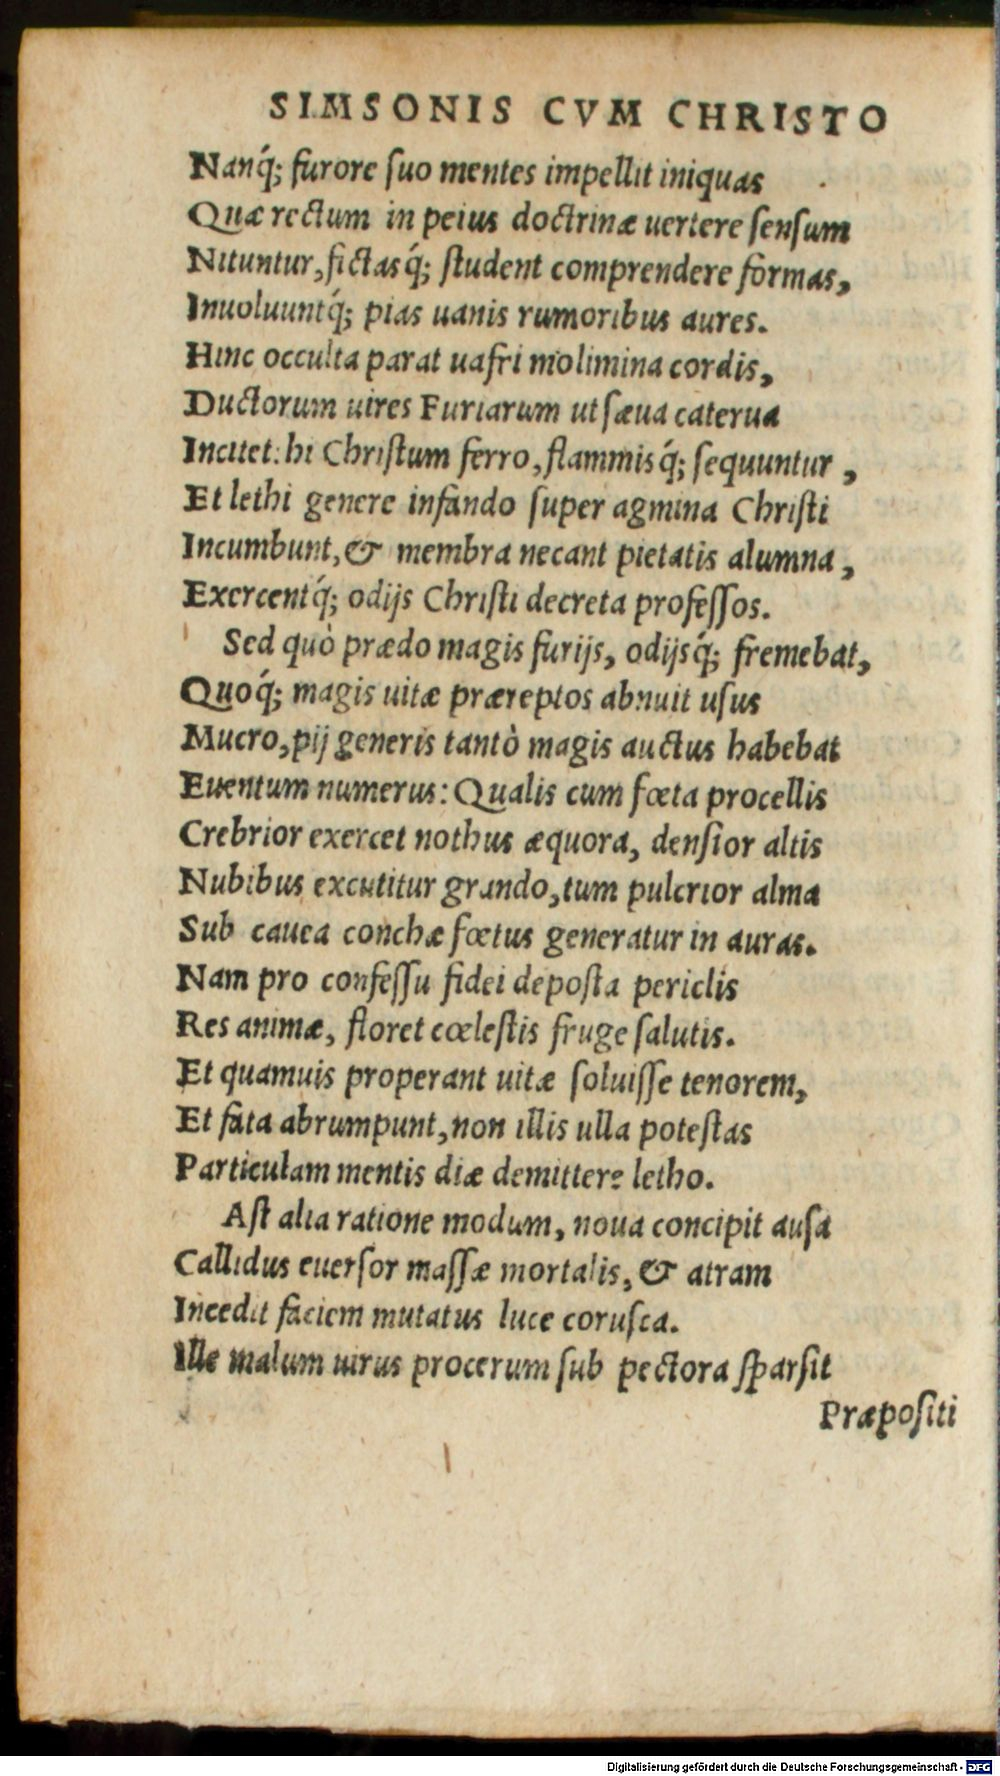 SIMSONIS CVM CHRISTO
Nanq́; furore ſuo mentes impellit iniquas
Quæ rectum in peius doctrinæ uertere ſenſum
Nituntur, fictasq́; ſtudent comprendere formas,
Inuoluuntq́; pias uanis rumoribus aures.
Hinc occulta parat uafri molimina cordis,
Ductorum uires Furiarum ut ſæua caterua
Incitet: hi Chriſtum ferro, flammisq́; ſequuntur,
Et lethi genere infando ſuper agmina Chriſti
Incumbunt, & membra necant pietatis alumna,
Exercentq́; odijs Chriſti decreta profeſſos.
Sed quò prædo magis furijs, odijsq́; fremebat,
Quoq́; magis uitæ præreptos abnuit uſus
Mucro, pij generis tantò magis auctus habebat
Euentum numerus: Qualis cum fœta procellis
Crebrior exercet nothus æquora, denſior altis
Nubibus excutitur grando, tum pulcrior alma
Sub cauea conchæ fœtus generatur in auras.
Nam pro confeſſu fidei depoſta periclis
Res animæ, floret cœleſtis fruge ſalutis.
Et quamuis properant uitæ ſoluiſſe tenorem,
Et fata abrumpunt, non illis ulla poteſtas
Particulam mentis diæ demittere letho.
Aſt alia ratione modum, noua concipit auſa
Callidus euerſor maſſæ mortalis, & atram
Incedit faciem mutatus luce coruſca.
Ille malum uirus procerum ſub pectora ſparſit
Præpoſiti
Digitalisierung gefördert durch die Deutsche Forschungsgemeinschaft - DFG